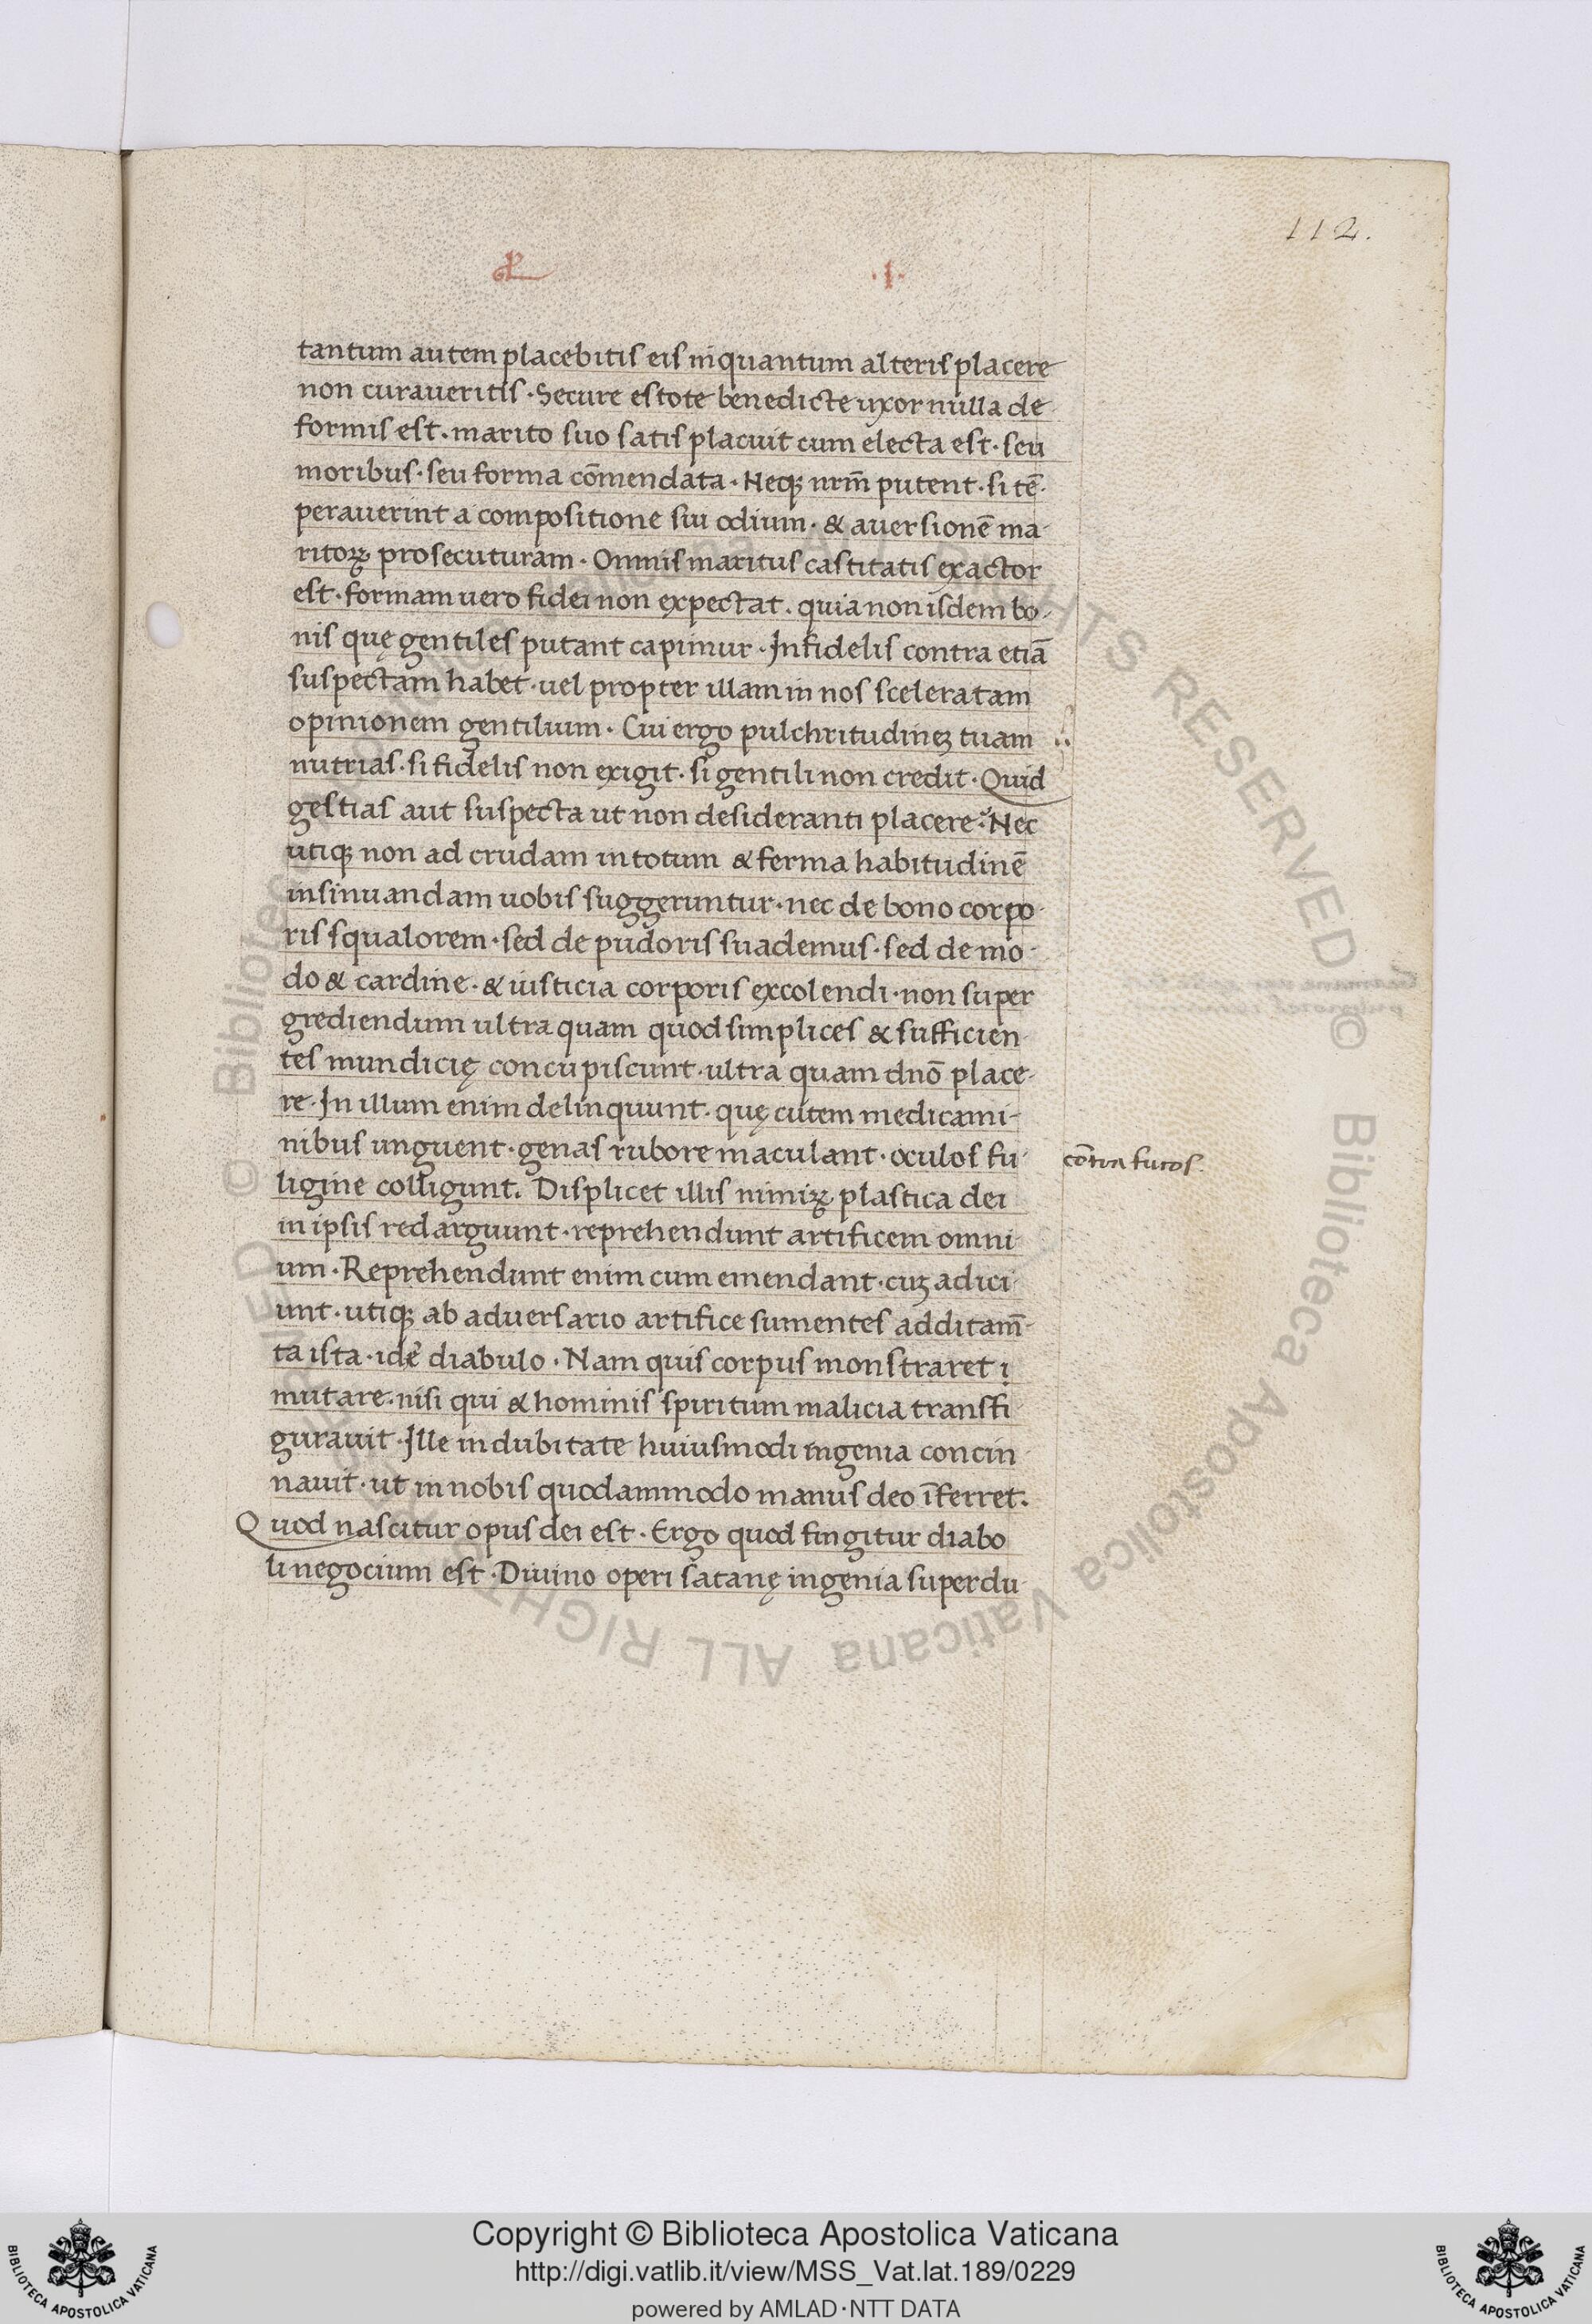 112.
.I.
tantum autem placebitis eis inquantum alteris placere
non curaueritis · Secure estote benedicte uxor nulla de
formis est. marito suo satis placuit cum electa est · seu
moribus · seu forma cōmendata · Neqꝫ nrm̄ putent · si tē-
perauerint a compositione sui odium · & auersionē ma-
ritoꝝ prosecuturam · Omnis maritus castitatis exactor
est · formam uero fidei non expectat. quia non isdem bo-
nis quę gentiles putant capimur · Infidelis contra etiā
suspectam habet · uel propter illam in nos sceleratam
opinionem gentilium · Cui ergo pulchritudineꝫ tuam
nutrias · si fidelis non exigit · si gentili non credit · Quid
gestias aut suspecta ut non desideranti placere · Nec
utiqꝫ non ad crudam in totum & ferma habitudinē
insinuandam uobis suggeruntur · nec de bono corpo-
ris squalorem · sed de pudoris suademus · sed de mo-
do & cardine · & iusticia corporis excolendi · non super
grediendum ultra quam quod simplices & sufficien-
tes mundicię concupiscunt · ultra quam dn̄o place-
re · In illum enim delinquunt · quę cutem medicami-
nibus unguent · genas rubore maculant · oculos fu-
contra fucos.
ligine colligunt. Displicet illis nimiꝝ plastica dei
in ipsis redarguunt · reprehendunt artificem omni
um · Reprehendunt enim cum emendant · cuꝫ adici-
unt · utiqꝫ ab aduersario artifice sumentes additam̄-
ta ista · idē diabulo · Nam quis corpus monstraret ị
mutare · nisi qui & hominis spiritum malicia transfi
gurauit · Ille indubitate huiusmodi ingenia concin
nauit · ut in nobis quodammodo manus deo īferret.
Quod nascitur opus dei est · Ergo quod fingitur diabo
li negocium est · Diuino operi satanę ingenia superdu
Copyright © Biblioteca Apostolica Vaticana
http://digi.vatlib.it/view/MSS_Vat.lat.189/0229
powered by AMLAD·NTT DATA
BIBLIOTECA APOSTOLICA VATICANA
BIBLIOTECA APOSTOLICA VATICANA